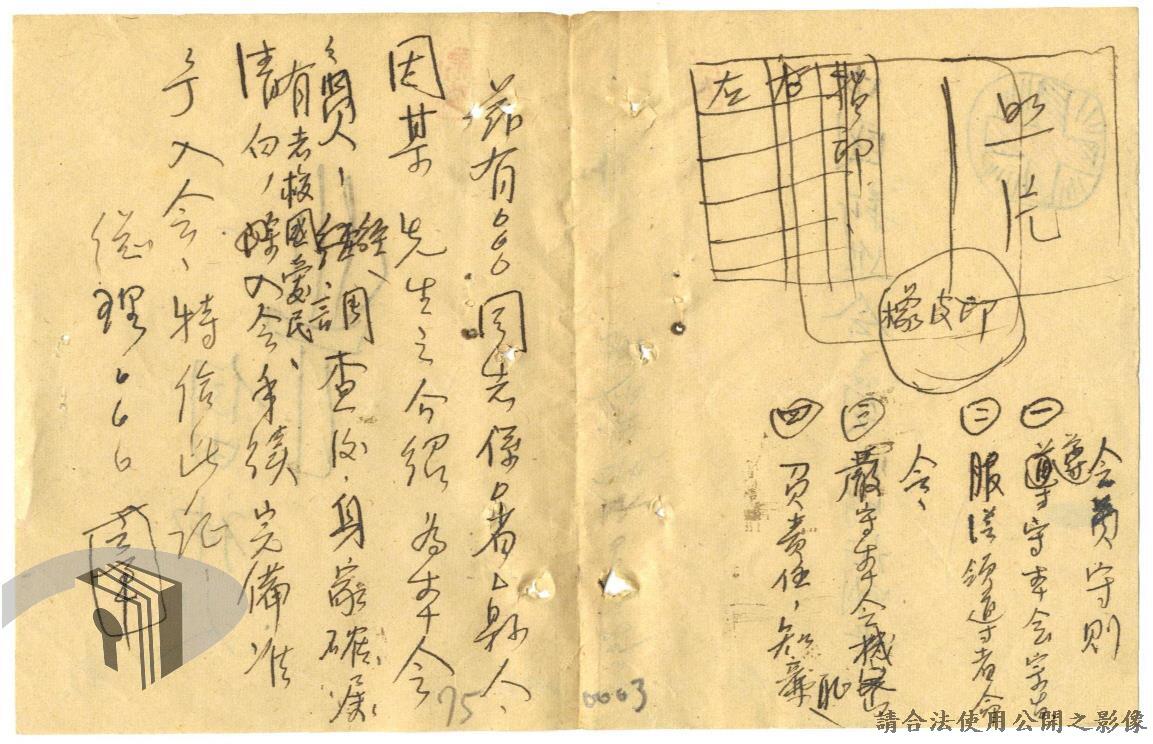 照片
指印
右
左
橡皮印
會員守則
㊀遵守本會宗旨
㊁服從領導者命
令、
㊂嚴守本會機密
㊃負責任，知廉恥
茲有〇〇〇同志係〇省〇縣人、
因某 先生之介紹為本會
會員、經調查後、身家確屬
清白、
有志校國愛民、
入會手續完備准
予入會、特給此証
總理〇〇〇
75
0003
請合法使用公開之影像